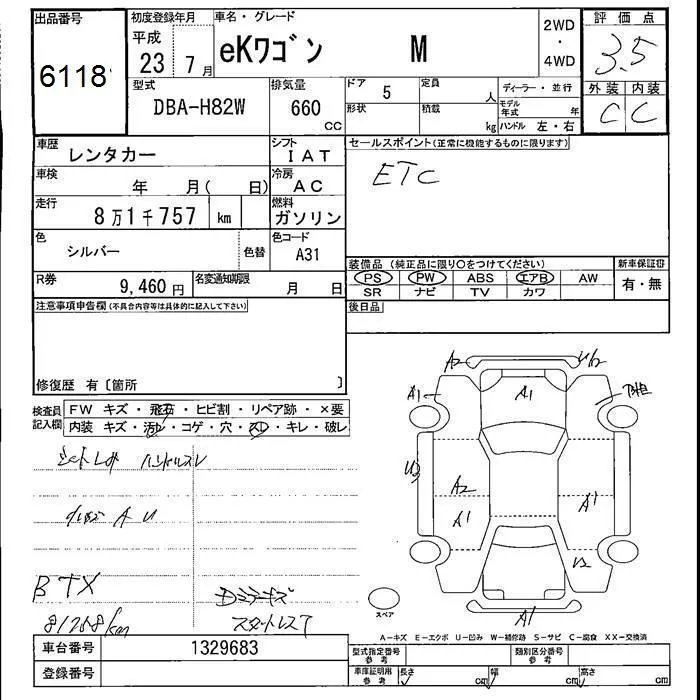 出品番号 初度登録年月 車名・グレード 2WD・4WD 評価点
6118 平成23 7月 eKワゴン M 3.5
型式 DBA-H82W 排気量 660 CC ドア 5 定員 人 ディーラー・並行 外装 内装
形状 積載 kg モデル年式 年 ハンドル 左・右 C C
車歴 レンタカー シフト IAT セールスポイント(正常に機能するものに限ります)
車検 年 月( 日) 冷房 AC ETC
走行 8万1千757 km 燃料 ガソリン
色 シルバー 色替 色コード A31
装備品 (純正品に限り○をつけてください) 新車保証書
R券 9,460円 名変通知期限 月 日 PS PW ABS エアB AW 有・無
SR ナビ TV カワ
注意事項申告欄(不具合内容等は具体的に記入して下さい) 後日品
修復歴 有〔箇所 〕
検査員記入欄 FW キズ・飛石・ヒビ割・リペア跡・×要
内装 キズ・汚レ・コゲ・穴・スレ・キレ・破レ
A2
A1 A1
A2 A1
A1
A1
ハンドルスレ
A U
BTX
スペア
81758km
A-キズ E-エクボ U-凹み W-補修跡 S-サビ C-腐食 XX-交換済
車台番号 1329683 型式指定番号 参考 類別区分番号 参考
登録番号 車庫証明用 参考 長さ cm 幅 cm 高さ cm